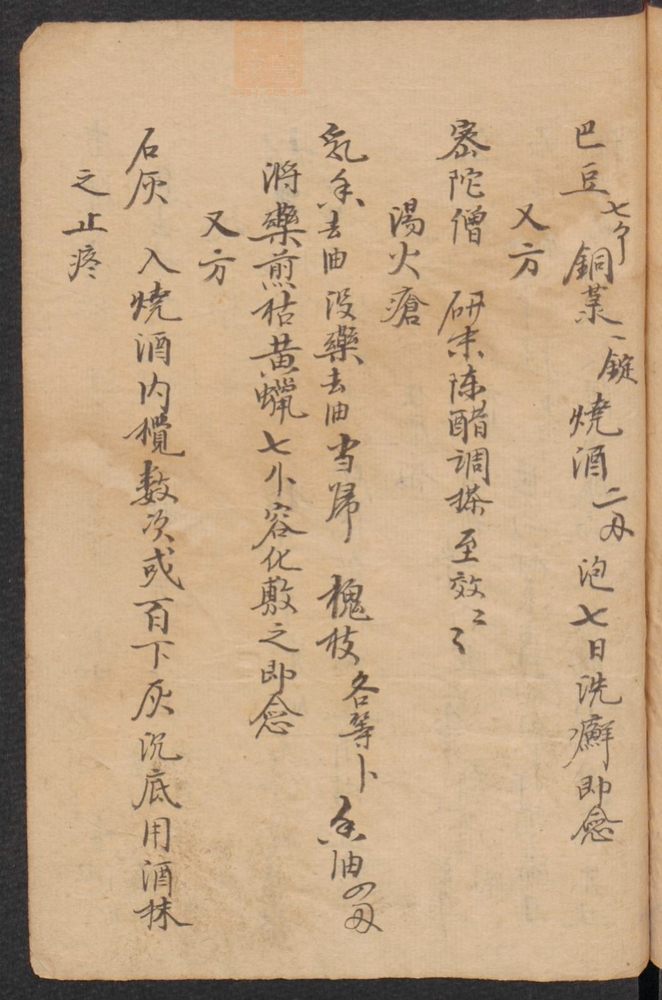 巴豆七个 銅菉一錠 燒酒二刄 泡七日洗癬即念
又方
密陀僧 研末陈醋调搽至效〻〻
湯火瘡
乳香去油 没藥去油 当归 槐枝各等卜 香油四刄
將藥煎枯黄蠟七卜容化敷之即念
又方
石灰 入燒酒内攪数次或百下灰沉底用酒抹
之止疼